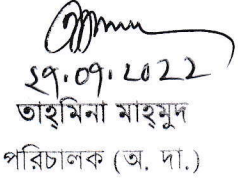 ২৭.০৭.2022
তাহমিনা মাহমুদ
পরিচালক (অ. দা.)